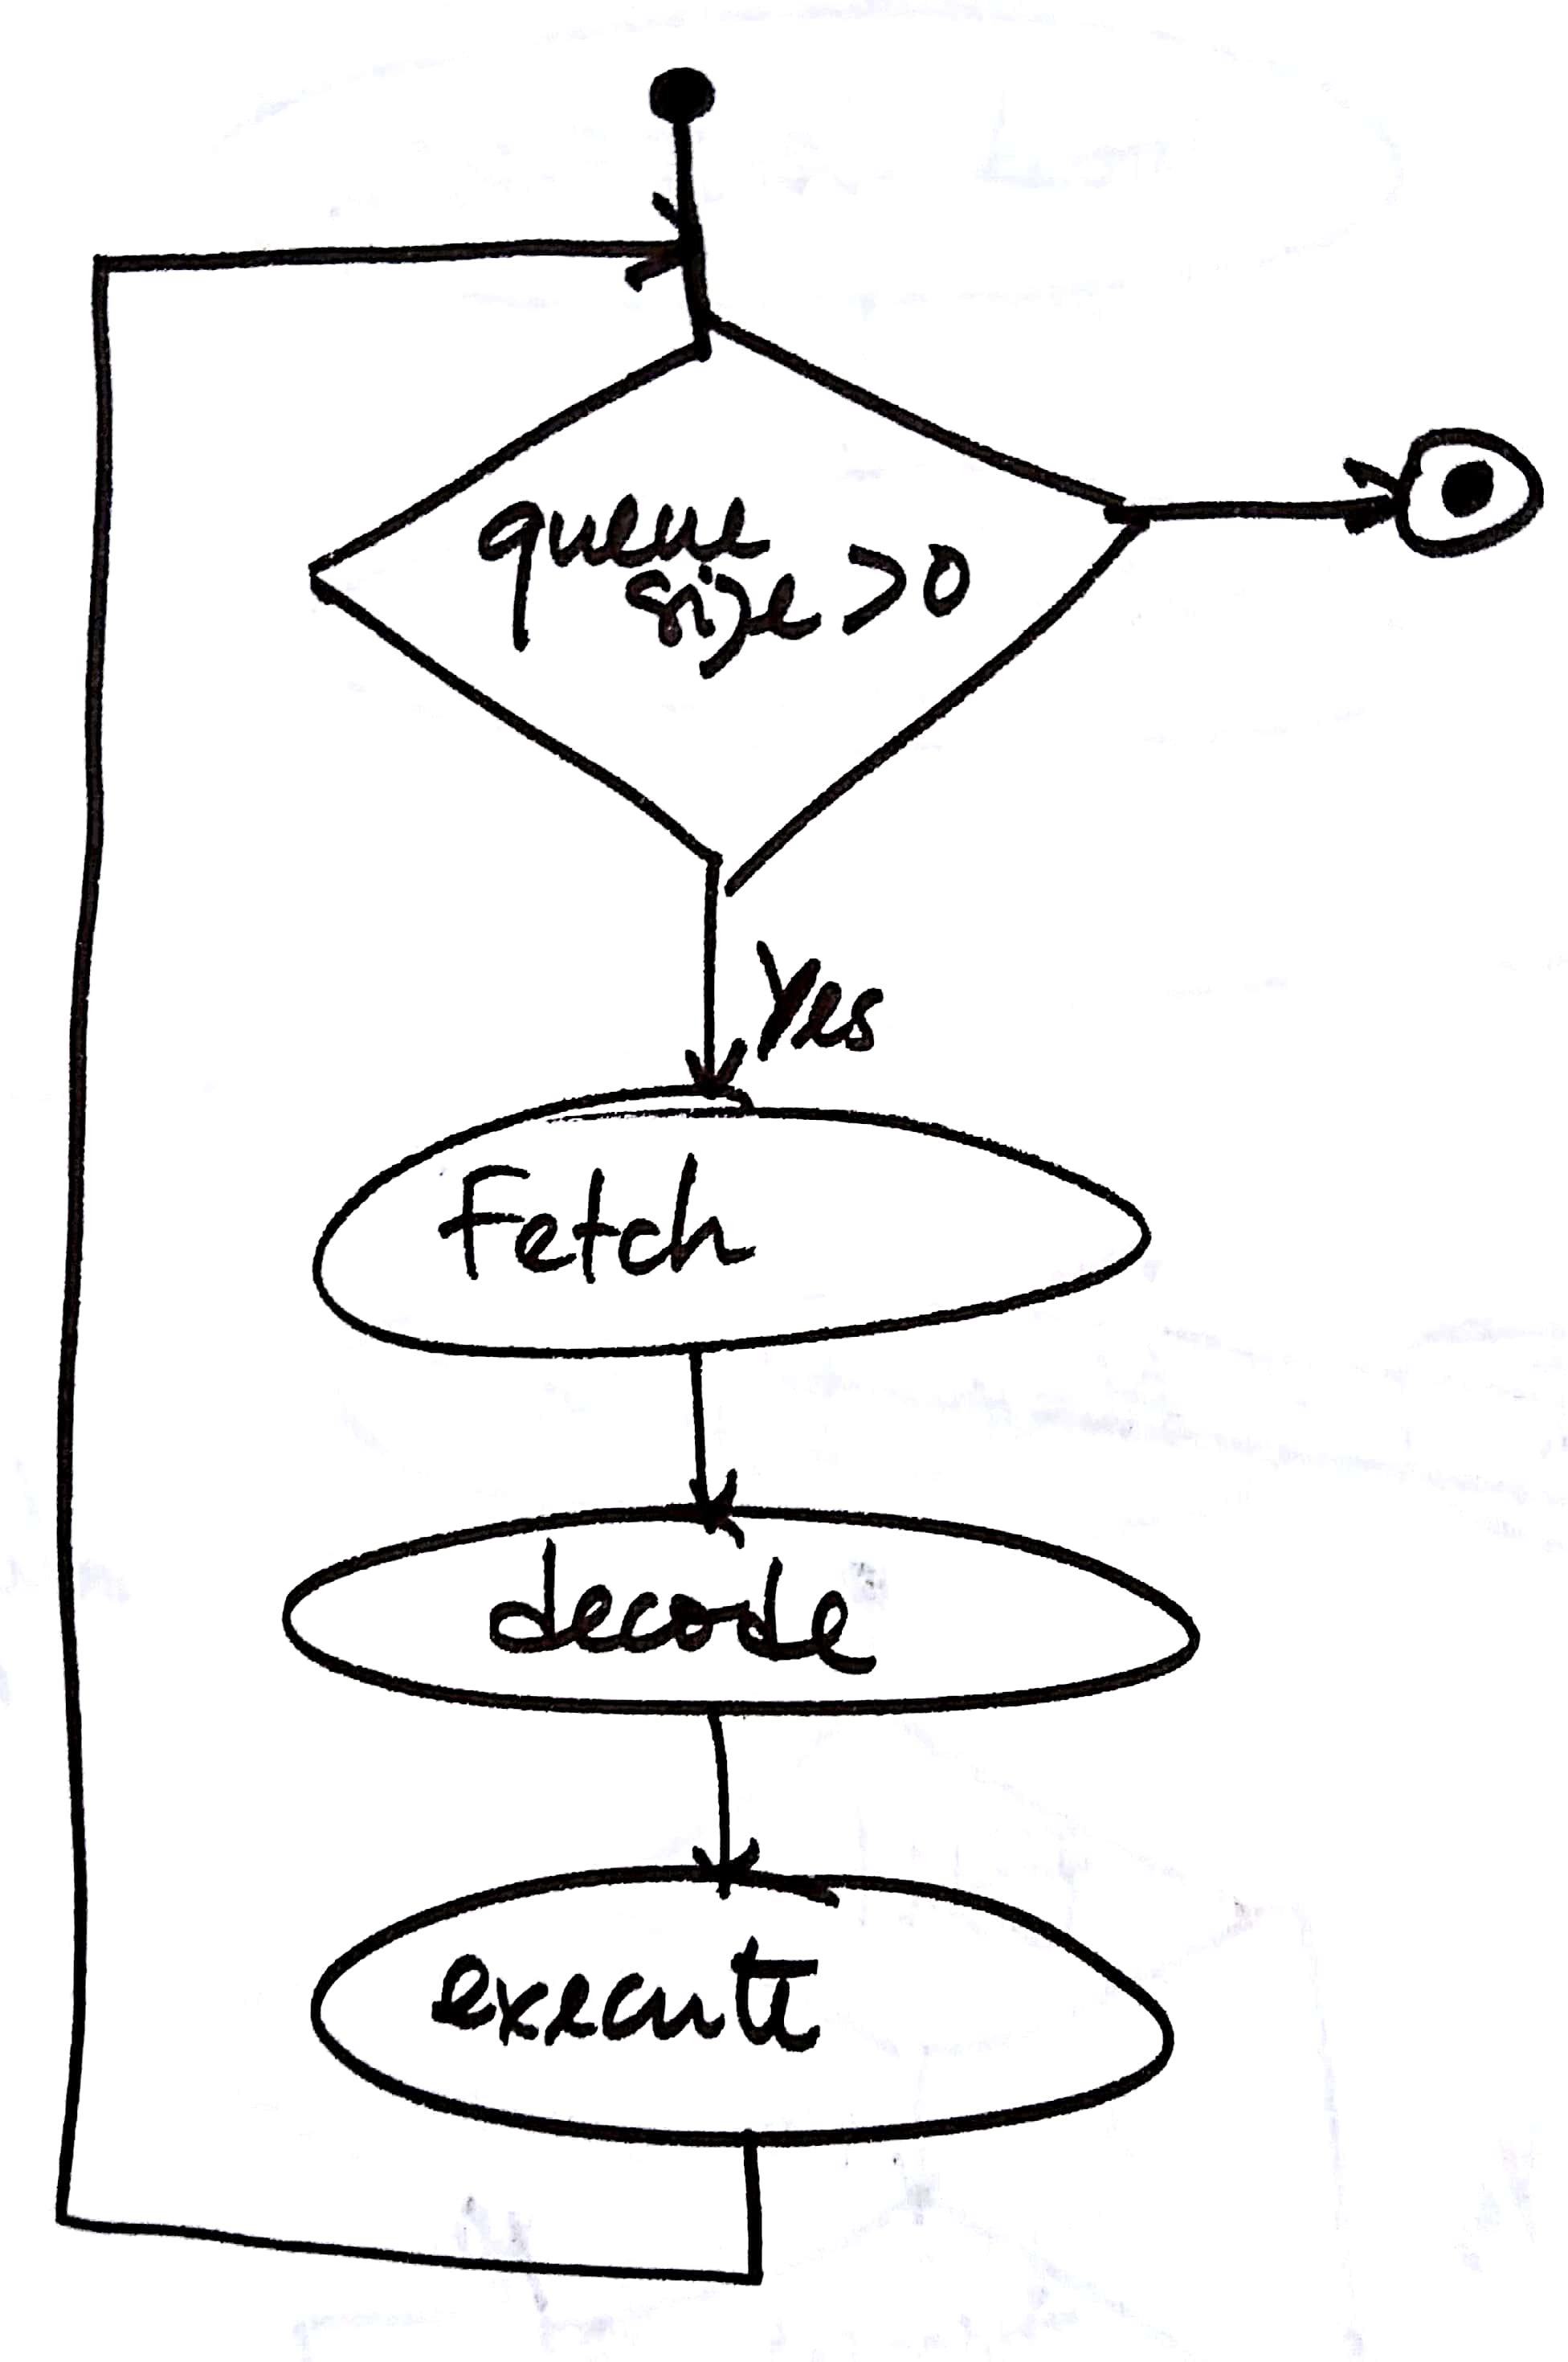 queue
size >0
Yes
Fetch
decode
execute